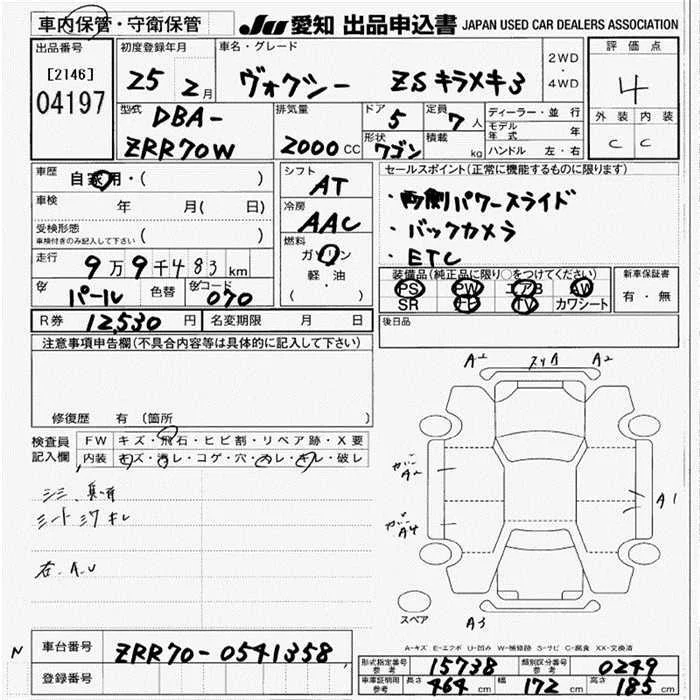 車内保管・守衛保管
JU 愛知 出品申込書 JAPAN USED CAR DEALERS ASSOCIATION
出品番号
[2146]
04197
初度登録年月
25 2月
車名・グレード
ヴォクシー ZSキラメキ3
2WD・4WD
評価点
4
外装 内装
C C
型式
DBA-
ZRR70W
排気量
2000CC
ドア
5
形状
ワゴン
定員
7人
積載
kg
ディーラー・並行
モデル年式 年
ハンドル 左・右
車歴 自家用・( )
車検 年 月( 日)
受検形態
車検付きのみ記入して下さい
走行 9万9千483km
色 パール 色替 色コード 070
シフト
AT
冷房
AAC
燃料
ガソリン
軽・油
( )
セールスポイント(正常に機能するものに限ります)
・両側パワースライド
・バックカメラ
・ETC
装備品(純正品に限り○をつけてください)
PS PW エアB AW
SR ナビ TV カワシート
新車保証書
有・無
後日品
R券 12,530円 名変期限 月 日
注意事項申告欄(不具合内容等は具体的に記入して下さい)
修復歴 有(箇所
検査員記入欄
FW キズ・飛石・ヒビ割・リペア跡・X要
内装 キズ・汚レ・コゲ・穴・スレ・キレ・破レ
シート シワ キレ
右 A.U
A2
A2
A1
A4
A3
スペア
A-キズ E-エクボ U-凹み W-補修跡 S-サビ C-腐食 XX-交換済
N
車台番号 ZRR70-0541358
登録番号
形式指定番号 参考 15738 類別区分番号 参考 0249
車庫証明用 参考 長さ 464cm 幅 172cm 高さ 185cm